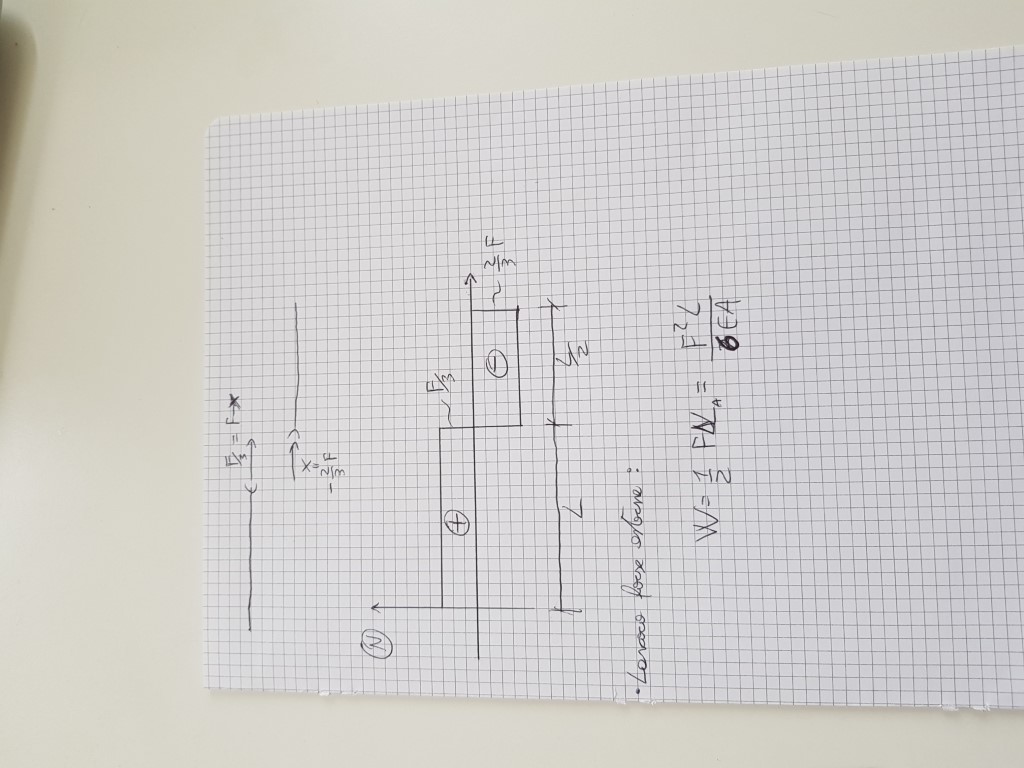 F/3 = F-x
x
"
- 2/3 F
N
+
F/3
-
2/3 F
L
L/2
• Lavoro forze esterne :
W = 1/2 F ΔL_A = F² L / 6 E A